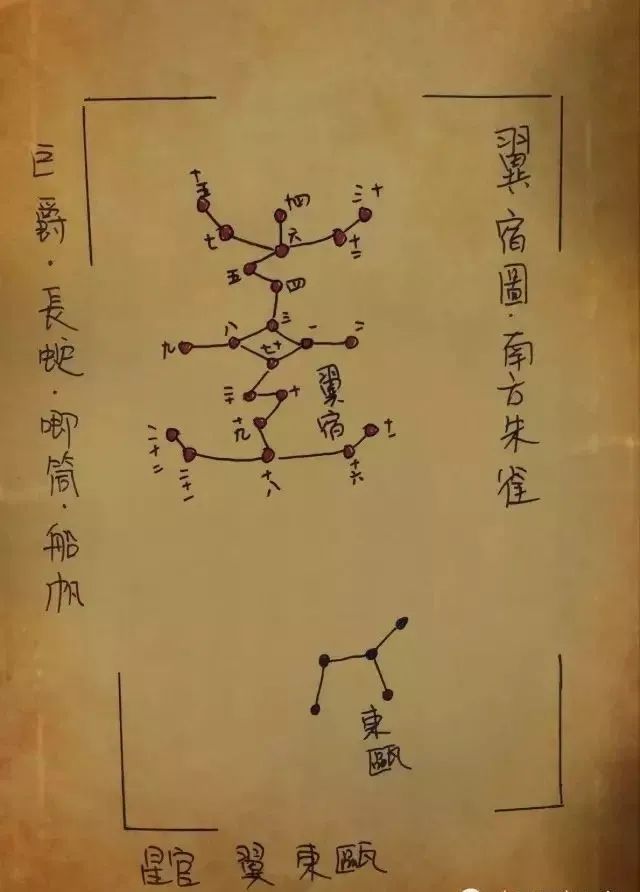 翼宿圖·南方朱雀
十五
十四
十三
七
六
十二
五
四
三
八
一
二
九
十七
二十
十
翼宿
十九
十一
二十二
二十一
十八
十六
東甌
巨爵·長蛇·唧筒·船帆
星官 翼 東甌